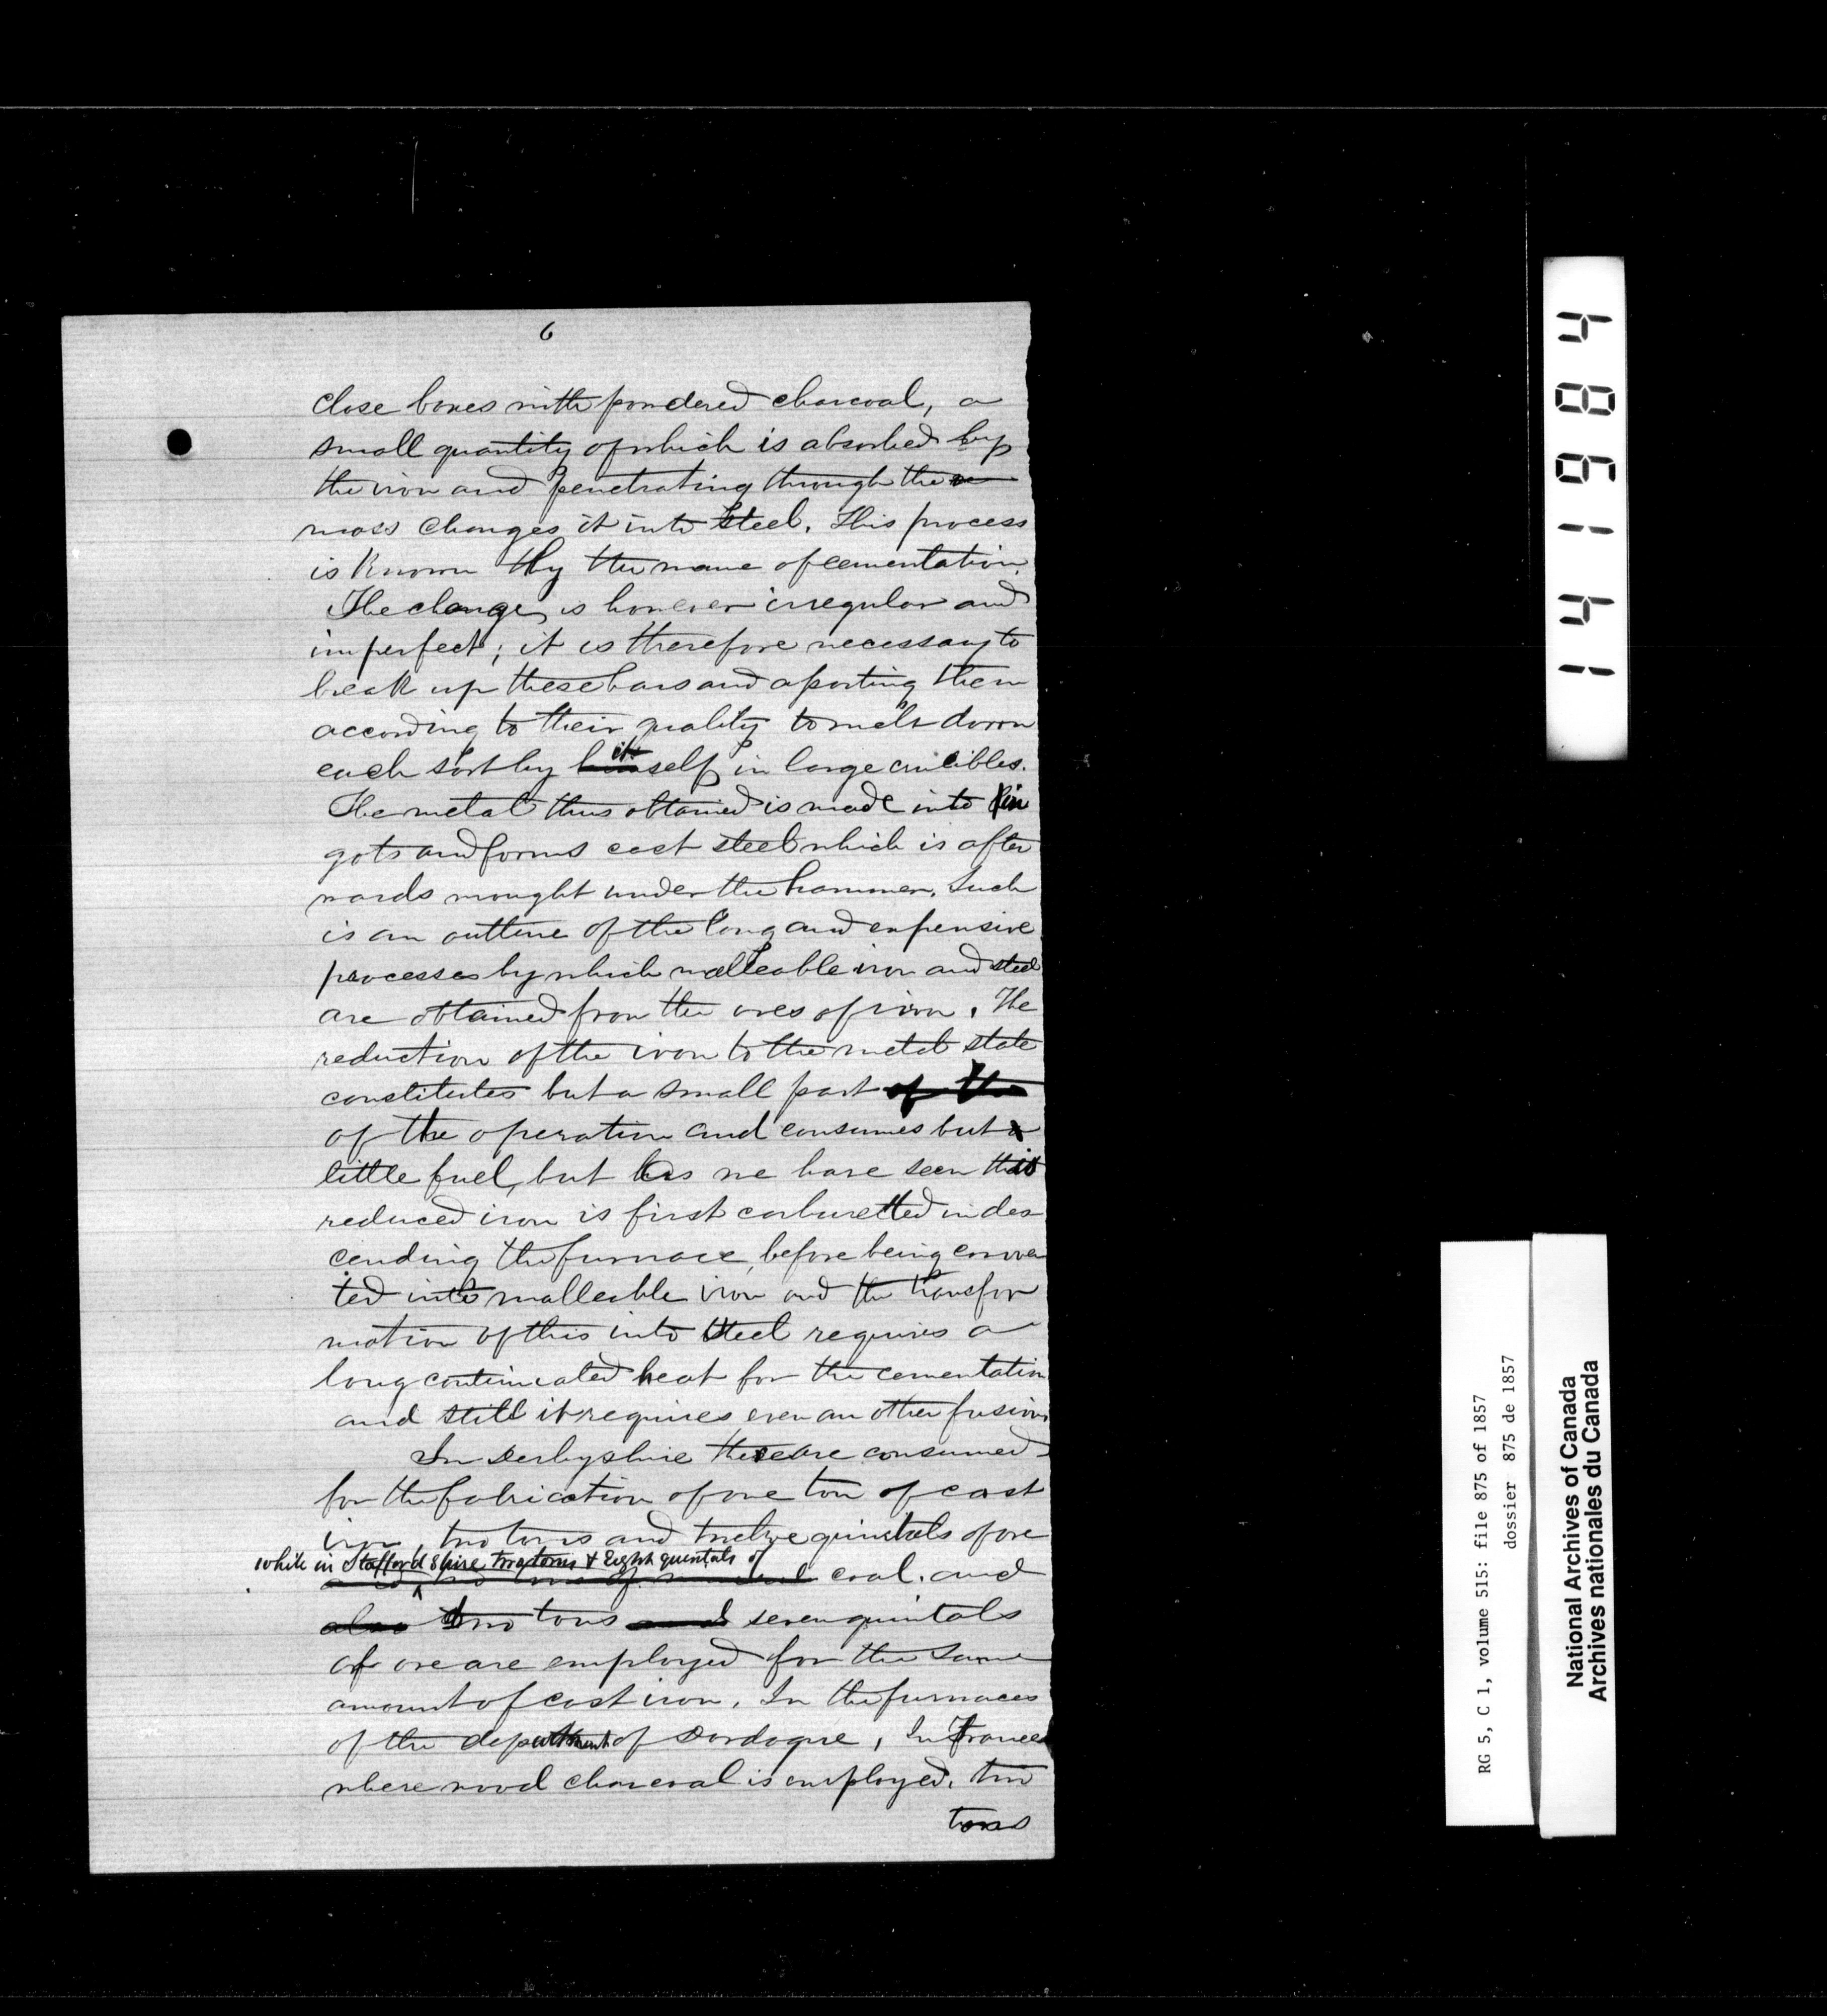 6
close boxes with powdered charcoal, a
small quantity of which is absorbed by
the iron and penetrating through the
mass changes it into steel. This process
is known by the name of cementation.
The change, is however irregular and
imperfect; it is therefore necessary to
break up these bars and asorting them
according to their quality to melt down
each sort by itself in large crucibles.
The metal thus obtained is made into in
gots and forms cast steel which is after
wards wrought under the hammer. Such
is an outline of the long and expensive
processes by which malleable iron and steel
are obtained from the ores of iron. The
reduction of the iron to the metal state
constitutes but a small part of the
of the operation and consumes but
little fuel, but as we have seen this
reduced iron is first carburetted in des
cending the furnace, before being conver
ted into malleable iron and the transfor
mation of this into steel requires a
long continuated heat for the cementation
and still it requires even an other fusion
In Derbyshire there are consumed
for the fabrication of one ton of cast
iron, two tons and twelve quintals of ore
while in Stafford Shire two tons & Eight quintals of
and two tons of mineral coal. and
also two tons and seven quintals
of ore are employed for the same
amount of cast iron. In the furnaces
of the department of Dordogne, In France
where wood charcoal is employed, two
tons
141984
RG 5, C 1, volume 515: file 875 of 1857
dossier 875 de 1857
National Archives of Canada
Archives nationales du Canada